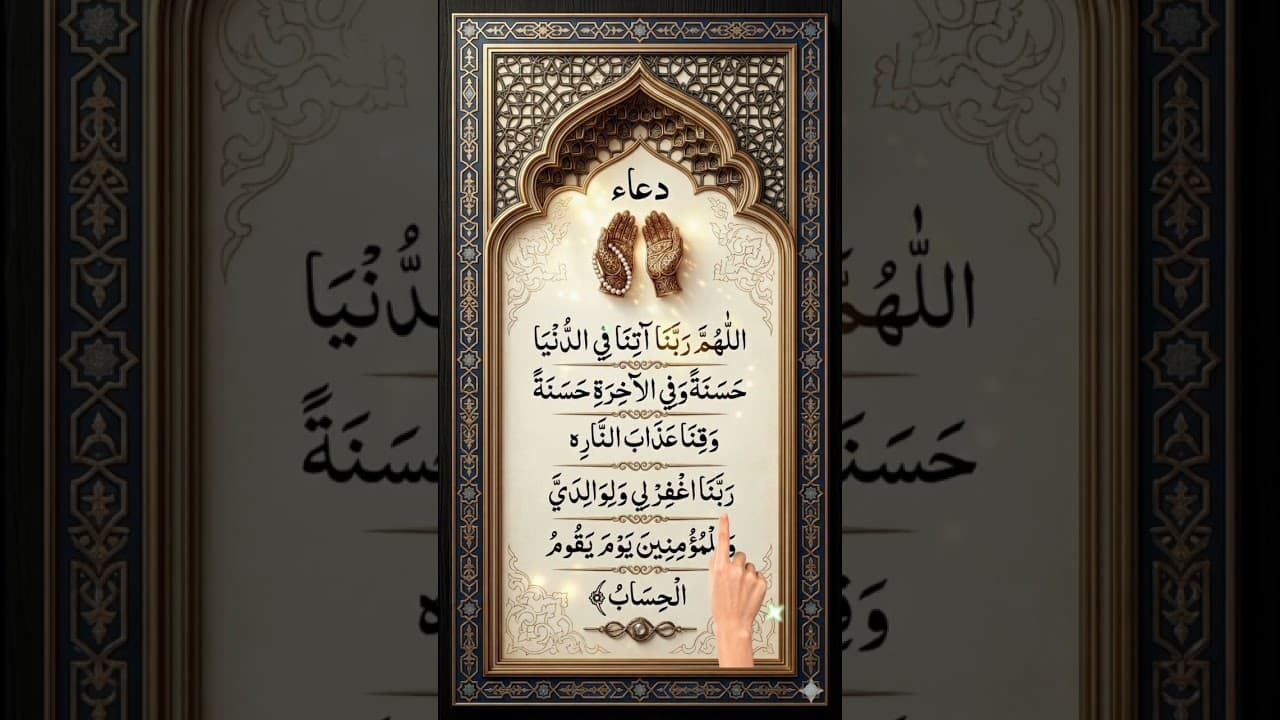 دعاء
اللّٰهُمَّ رَبَّنَا آتِنَا فِي الدُّنْيَا
حَسَنَةً وَفِي الآخِرَةِ حَسَنَةً
وَقِنَا عَذَابَ النَّارِه
رَبَّنَا اغْفِرْ لِي وَلِوَالِدَيَّ
وَلِلْمُؤْمِنِينَ يَوْمَ يَقُومُ
الْحِسَابُ ﴾